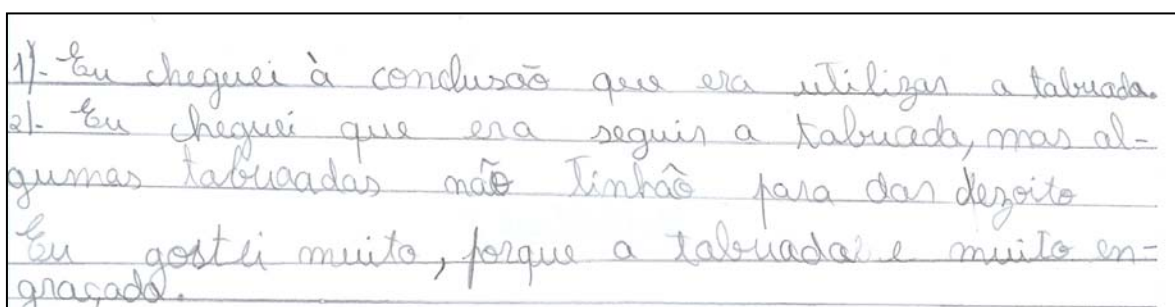 1)- Eu cheguei à conclusão que era utilizar a tabuada.
2)- Eu cheguei que era seguir a tabuada, mas al-
gumas tabuadas não tinhão para dar dezoito
Eu gostei muito, porque a tabuada e muito en-
graçada.